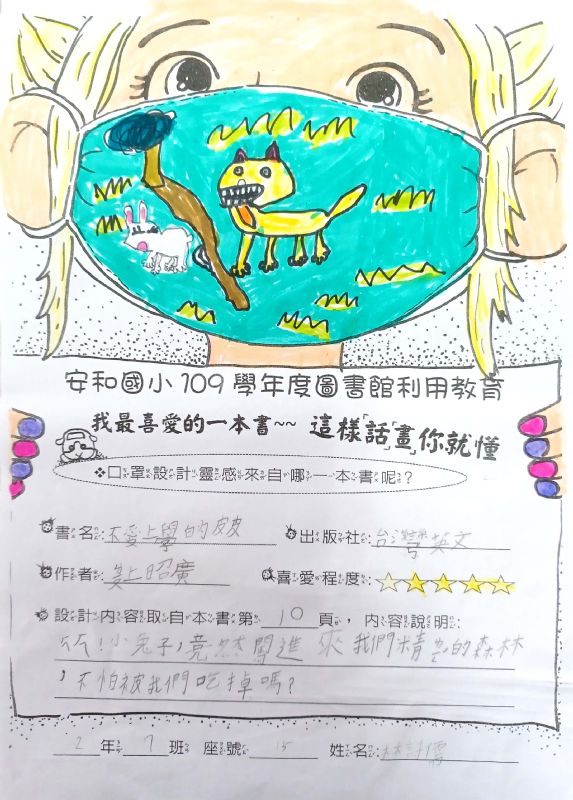 安和國小109學年度圖書館利用教育
我最喜愛的一本書~~ 這樣「話」畫」你就懂
❖口罩設計靈感來自哪一本書呢?
書名:不愛上學的皮皮 出版社:台灣英文
作者:吳昭廣 喜愛程度:
設計內容取自本書第10頁,內容說明:
ㄎㄎ!小兔子,竟然闖進來我們精ㄌㄧㄥˊ的森林
,不怕被我們吃掉嗎?
2年7班 座號15 姓名:林